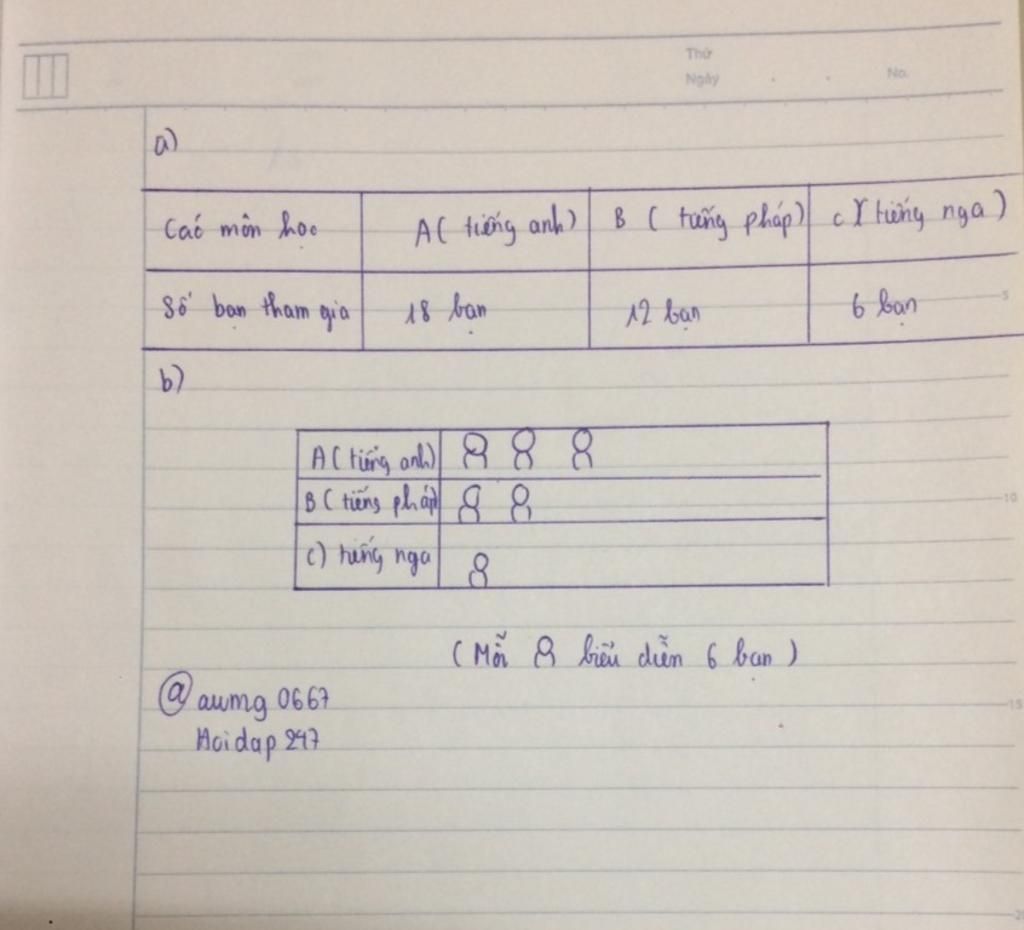 Thứ
Ngày . . No.
a)
Các môn học A ( tiếng anh) B ( tiếng pháp) C ( tiếng nga )
Số bạn tham gia 18 bạn 12 bạn 6 bạn
5
b)
A ( tiếng anh)
B ( tiếng pháp)
10
C) tiếng nga
( Mỗi biểu diễn 6 bạn )
@ aumg 0667
15
Hoidap 247
20